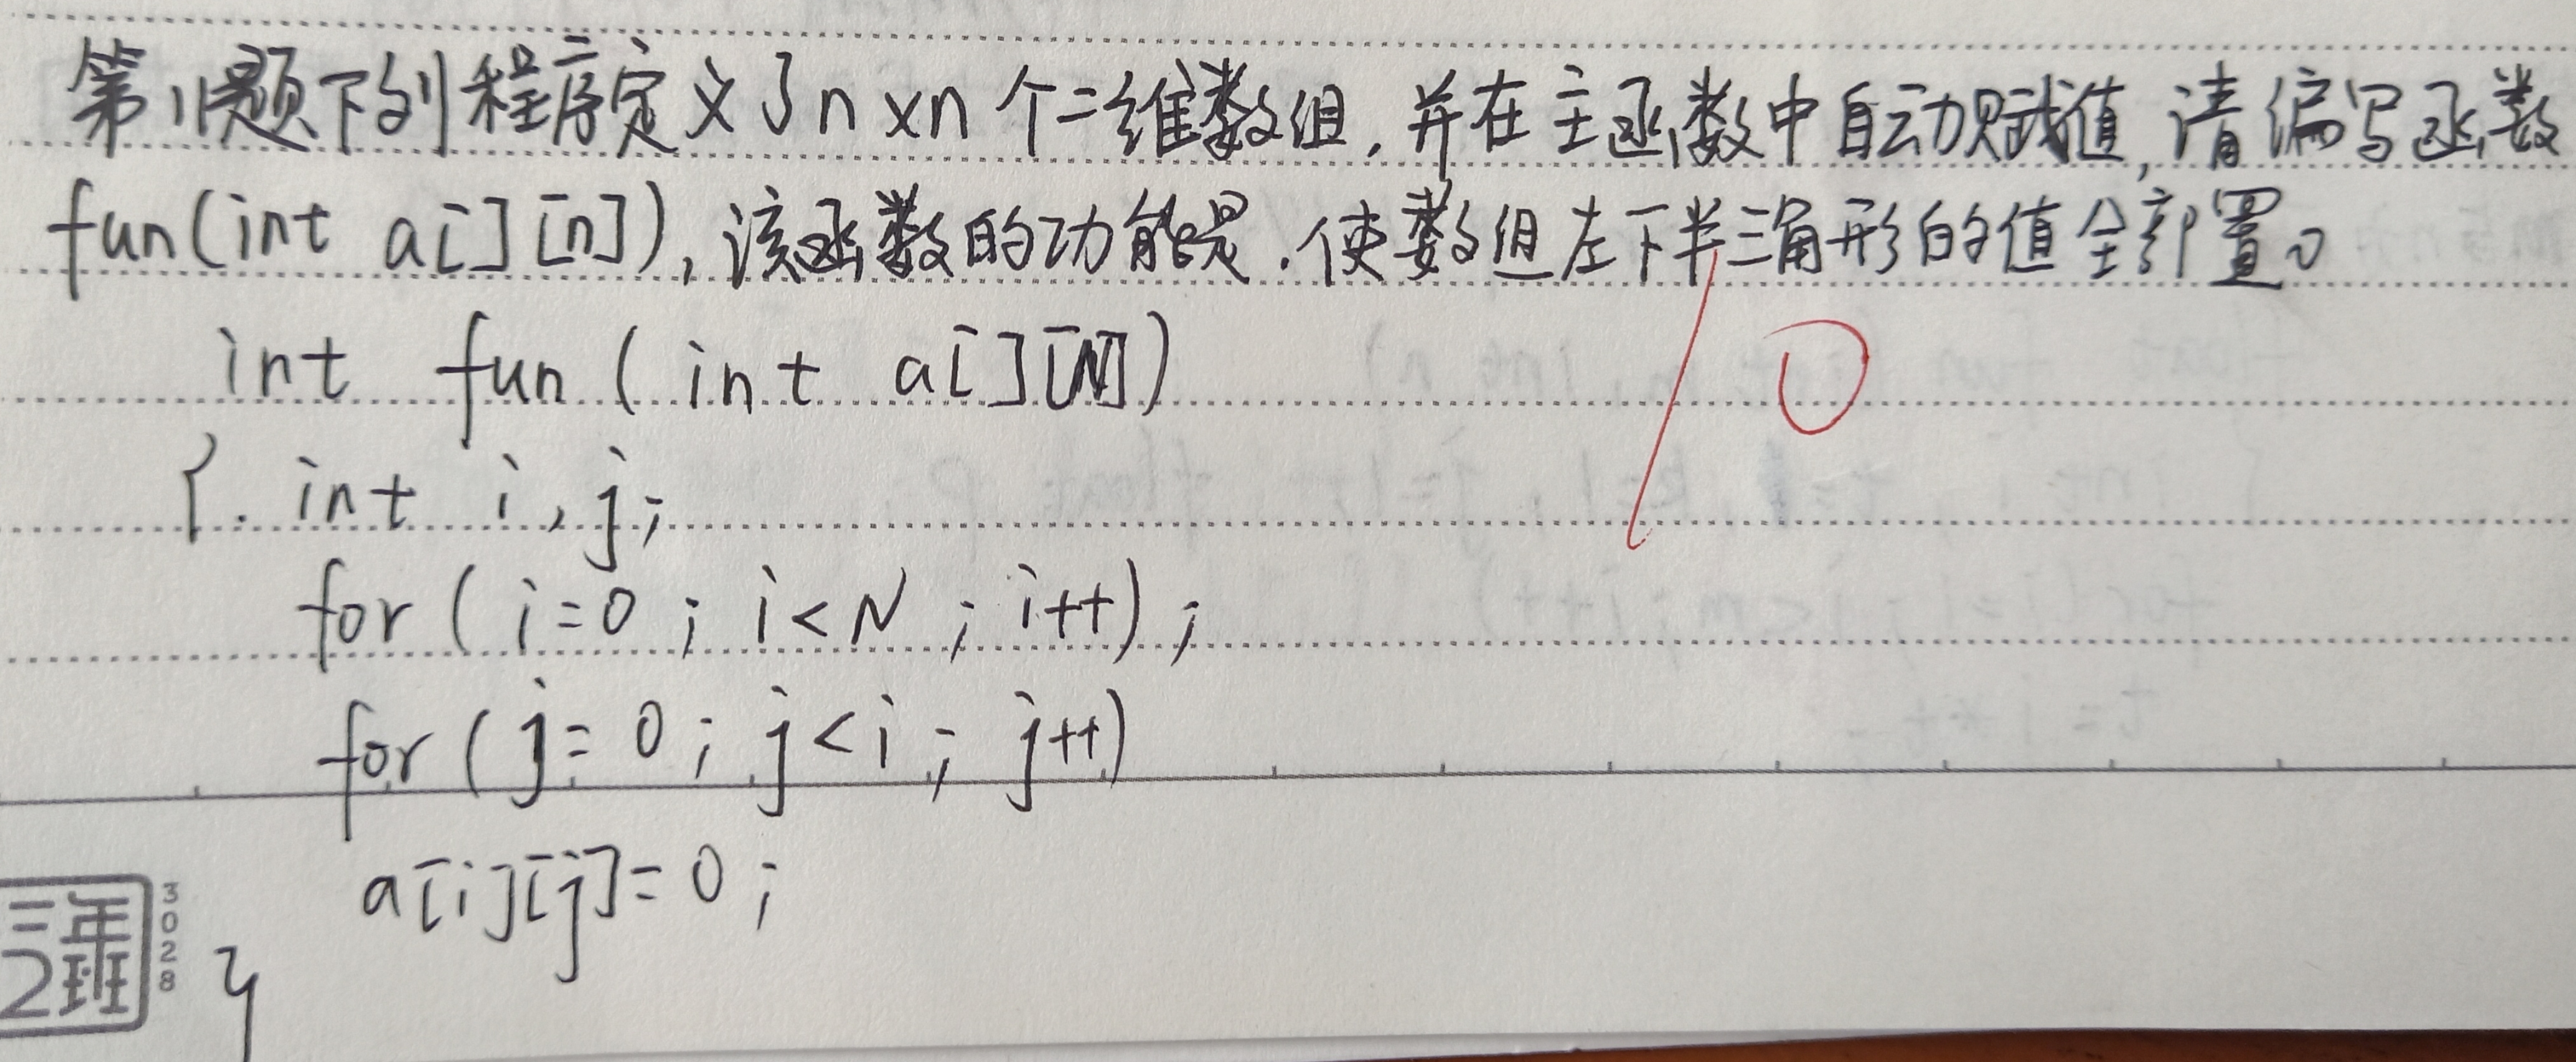 第11题下列程序定义了n×n个二维数组,并在主函数中自动赋值,请编写函数
fun(int a[][n]),该函数的功能是.使数组左下半三角形的值全部置0
0
int fun(int a[][N])
{. int i,j;
for(i=0;i<N;i++);
for(j=0;j<i;j++)
a[i][j]=0;
}
三年
2班
3028